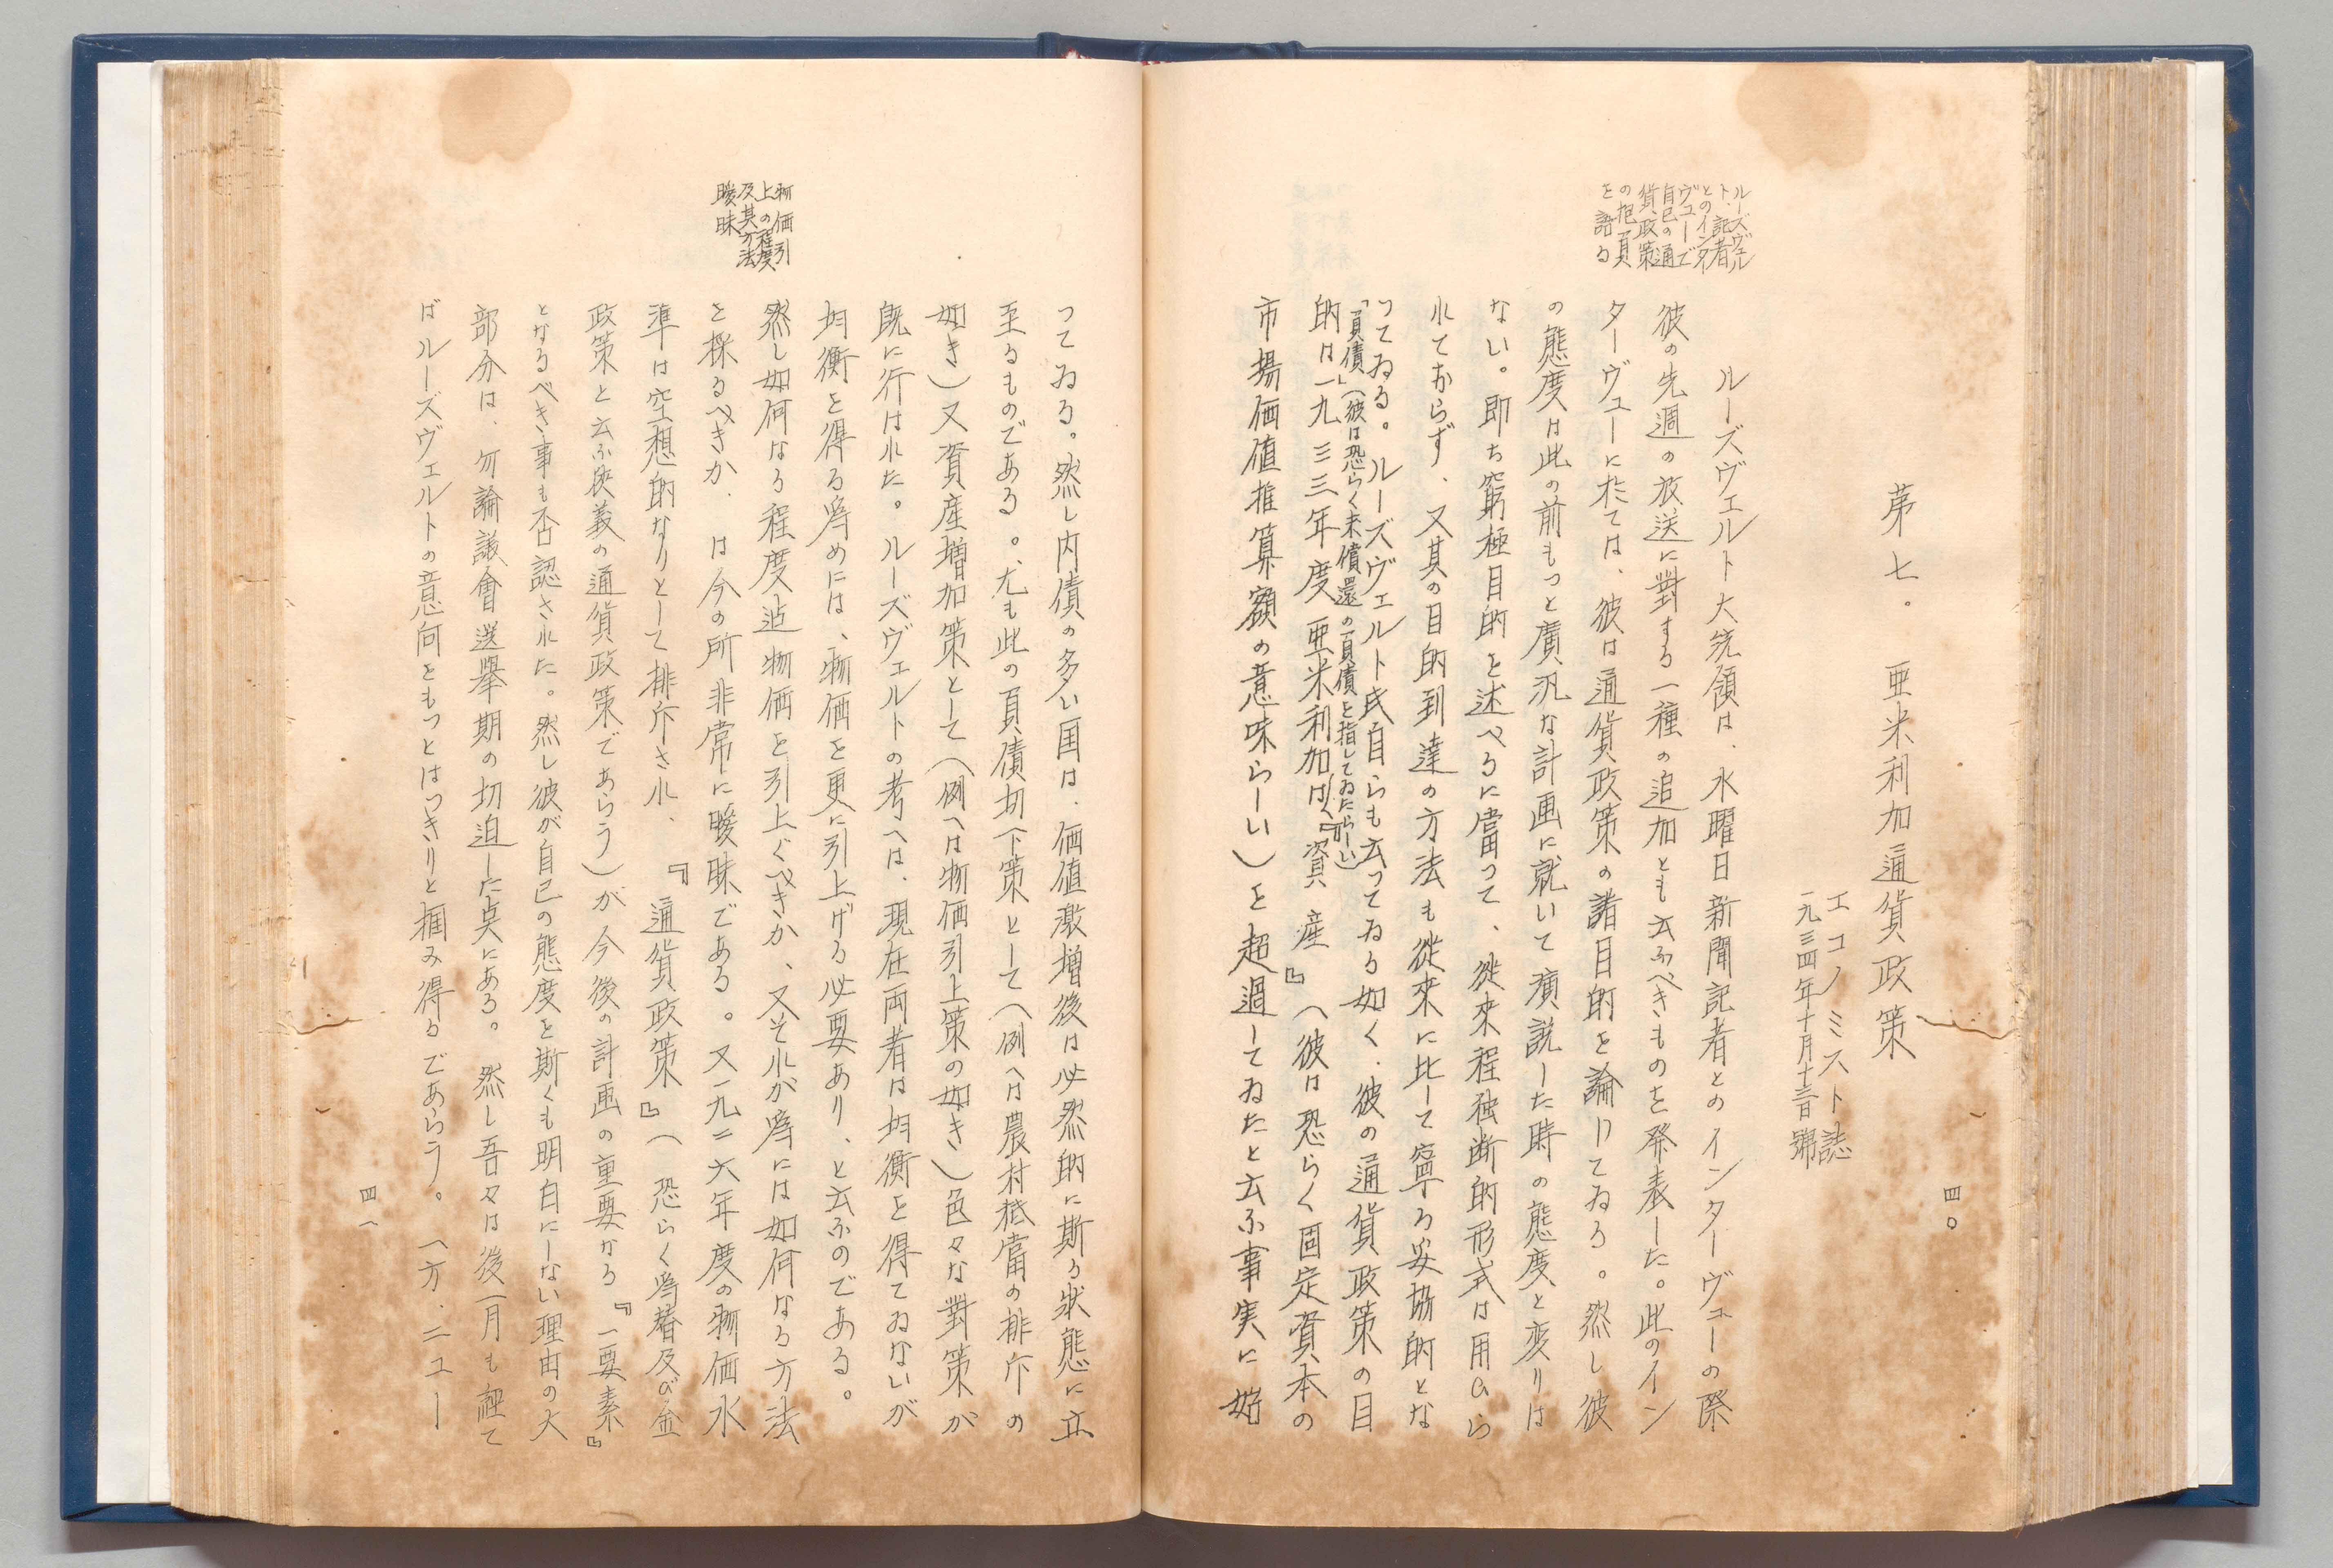 四〇
第七。亜米利加通貨政策
エコノミスト誌
一九三四年十月十三日號
ルーズヴェル
ト、記者
とのインター
ヴューで
自己の通
貨政策
の抱負
を語る
ルーズヴェルト大統領は、水曜日新聞記者とのインターヴューの際
彼の先週の放送に對する一種の追加とも云ふべきものを発表した。此のイン
ターヴューに於ては、彼は通貨政策の諸目的を論じてゐる。然し彼
の態度は此の前もっと廣汎な計画に就いて演説した時の態度と変りは
ない。即ち窮極目的を述べるに當って、従来程独断的形式は用ひら
れておらず、又其の目的到達の方法も従來に比して寧ろ妥協的とな
つてゐる。ルーズヴェルト氏自らも云ってゐる如く、彼の通貨政策の目
的は一九三三年度亜米利加は、『資産』(彼は恐らく固定資本の
「負債」(彼は恐らく未償還の負債を指してゐたらしい)が
市場価値推算額の意味らしい)を超過してゐたと云ふ事実に始
つてゐる。然し内債の多い国は、価値激増後は必然的に斯る状態に立
至るものである。尤も此の負債切下策として(例へは農村抵當の排斥の
如き)又資産増加策として(例へは物価引上策の如き)色々な對策が
既に行はれた。ルーズヴェルトの考へは、現在両者は均衡を得てゐないが
均衡を得る爲めには、物価を更に引上げる必要あり、と云ふのである。
物価引
上の程度
及其方法
曖昧
然し如何なる程度迄物価を引上ぐべきか、又それが爲には如何なる方法
を採るべきか、は今の所非常に曖昧である。又一九二六年度の物価水
準は空想的なりとして排斥され、『通貨政策』(恐らく爲替及び金
政策と云ふ狭義の通貨政策であらう)が今後の計画の重要なる『一要素』
となるべき事も否認された。然し彼が自己の態度を斯くも明白にしない理由の大
部分は、勿論議會選擧期の切迫した点にある。然し吾々は後一月も経て
ばルーズヴェルトの意向をもつとはつきりと掴み得るであらう。一方、ニュー
四一